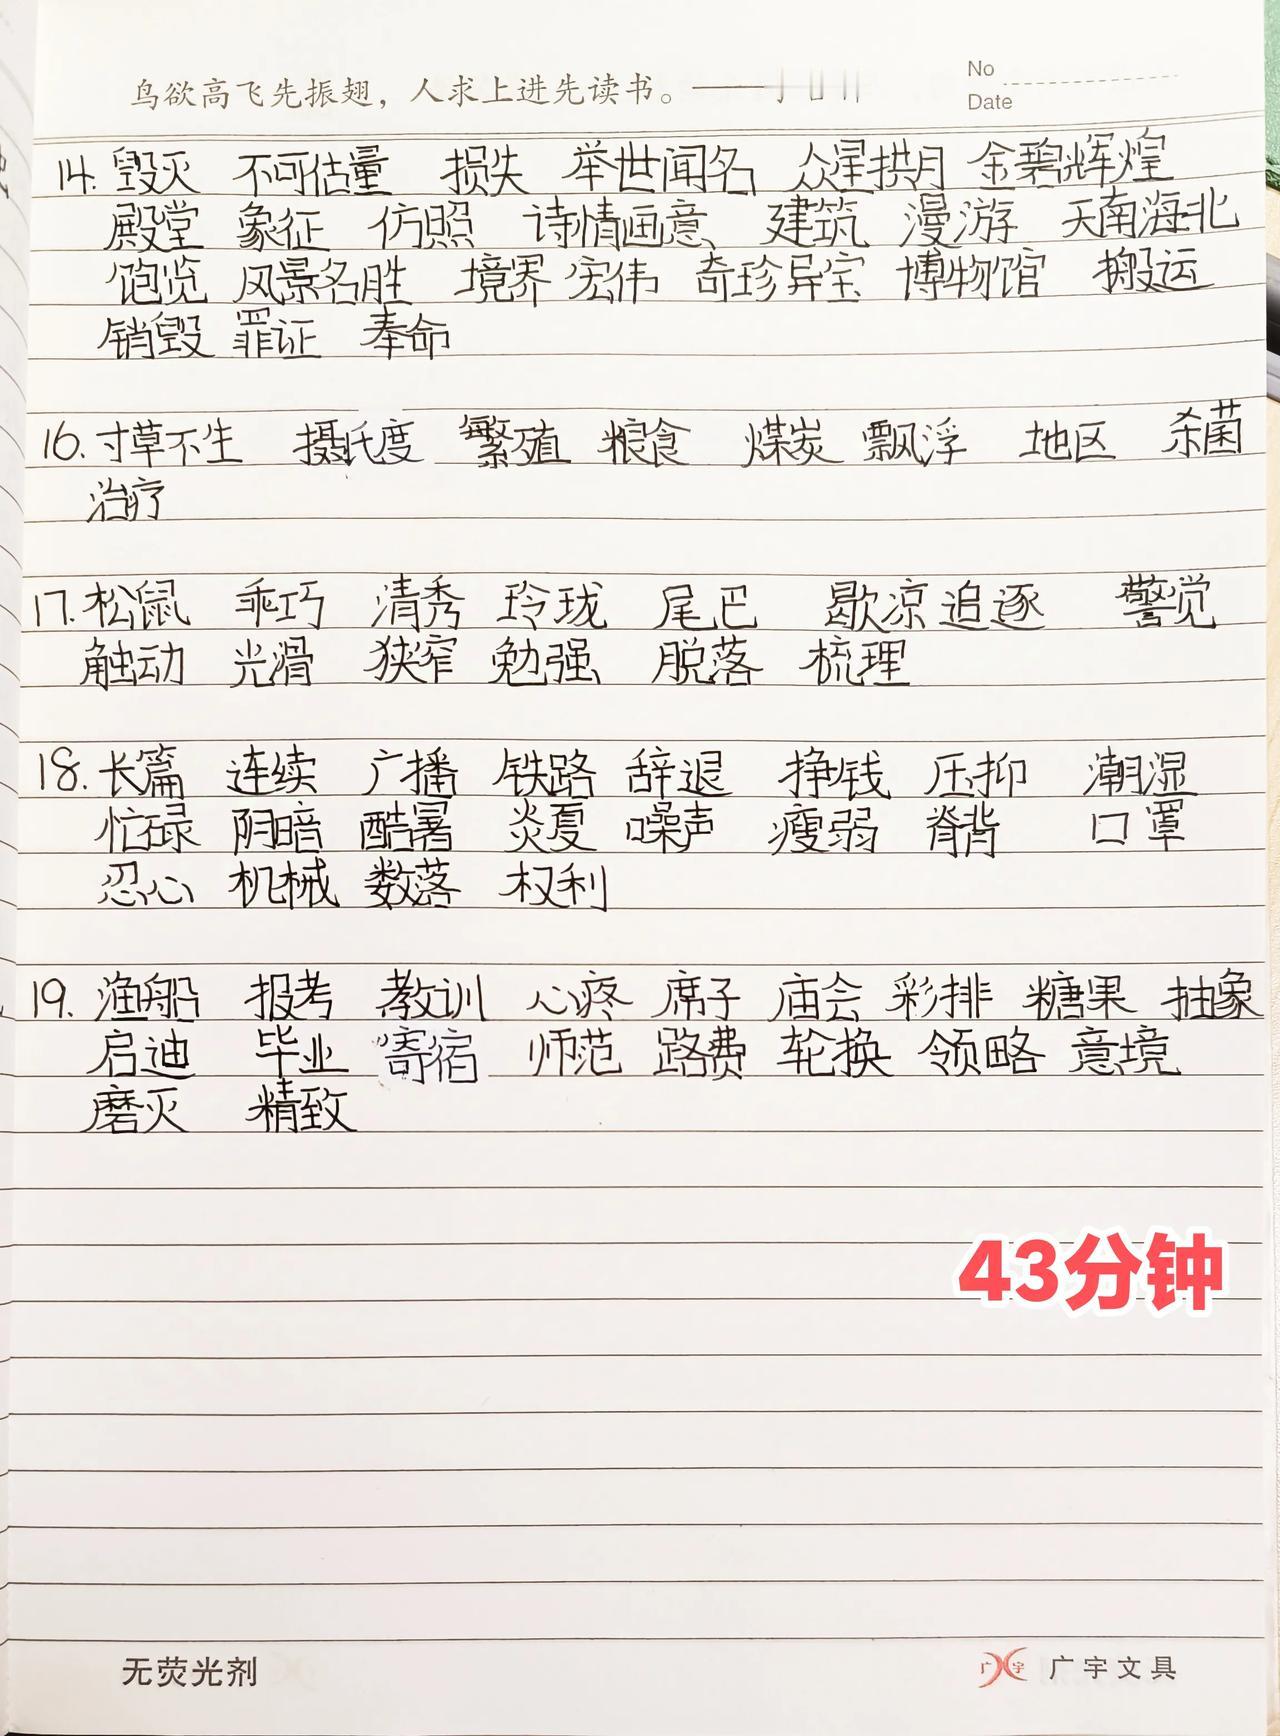 鸟欲高飞先振翅，人求上进先读书。——
No
Date
14. 毁灭 不可估量 损失 举世闻名 众星拱月 金碧辉煌
殿堂 象征 仿照 诗情画意 建筑 漫游 天南海北
饱览 风景名胜 境界 宏伟 奇珍异宝 博物馆 搬运
销毁 罪证 奉命
16. 寸草不生 摄氏度 繁殖 粮食 煤炭 飘浮 地区 杀菌
治疗
17. 松鼠 乖巧 清秀 玲珑 尾巴 歇凉 追逐 警觉
触动 光滑 狭窄 勉强 脱落 梳理
18. 长篇 连续 广播 铁路 辞退 挣钱 压抑 潮湿
忙碌 阴暗 酷暑 炎夏 噪声 瘦弱 脊背 口罩
忍心 机械 数落 权利
19. 渔船 报考 教训 心疼 席子 庙会 彩排 糖果 抽象
启迪 毕业 寄宿 师范 路费 轮换 领略 意境
磨灭 精致
43分钟
无荧光剂
广宇文具